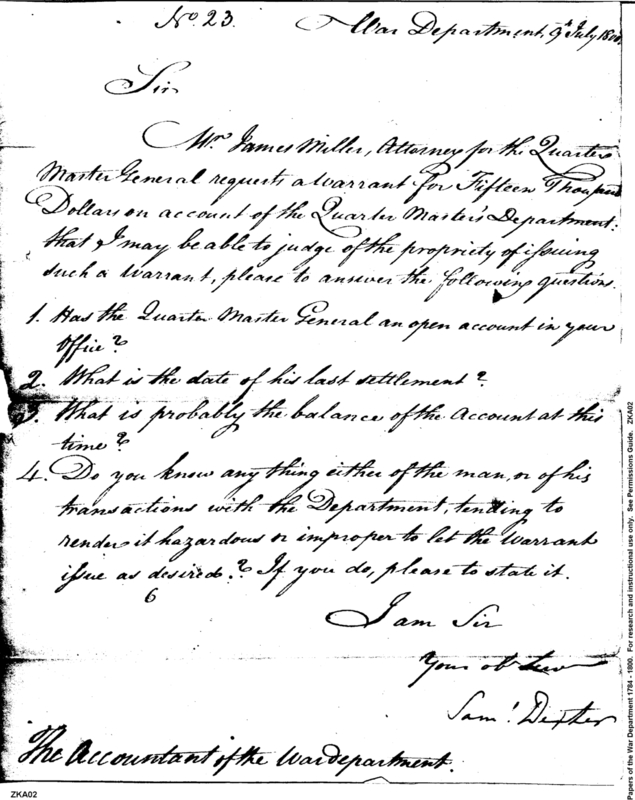 No. 23.
War Department, 9th July 1800.
Sir
Mr. James Miller, Attorney for the Quarter
Master General requests a warrant for Fifteen Thousand
Dollars on account of the Quarter Master's Department:
that I may be able to judge of the propriety of issuing
such a warrant, please to answer the following questions.
1. Has the Quarter Master General an open account in your
Office?
2. What is the date of his last settlement?
3. What is probably the balance of the Account at this
time?
4. Do you know any thing either of the man, or of his
transactions with the Department, tending to
render it hazardous or improper to let the warrant
issue as desired? If you do, please to state it.
6
I am Sir
Your ob Serv
Saml. Dexter
The Accountant of the War department.
ZKA02
Papers of the War Department 1784 - 1800. For research and instructional use only. See Permissions Guide. ZKA02